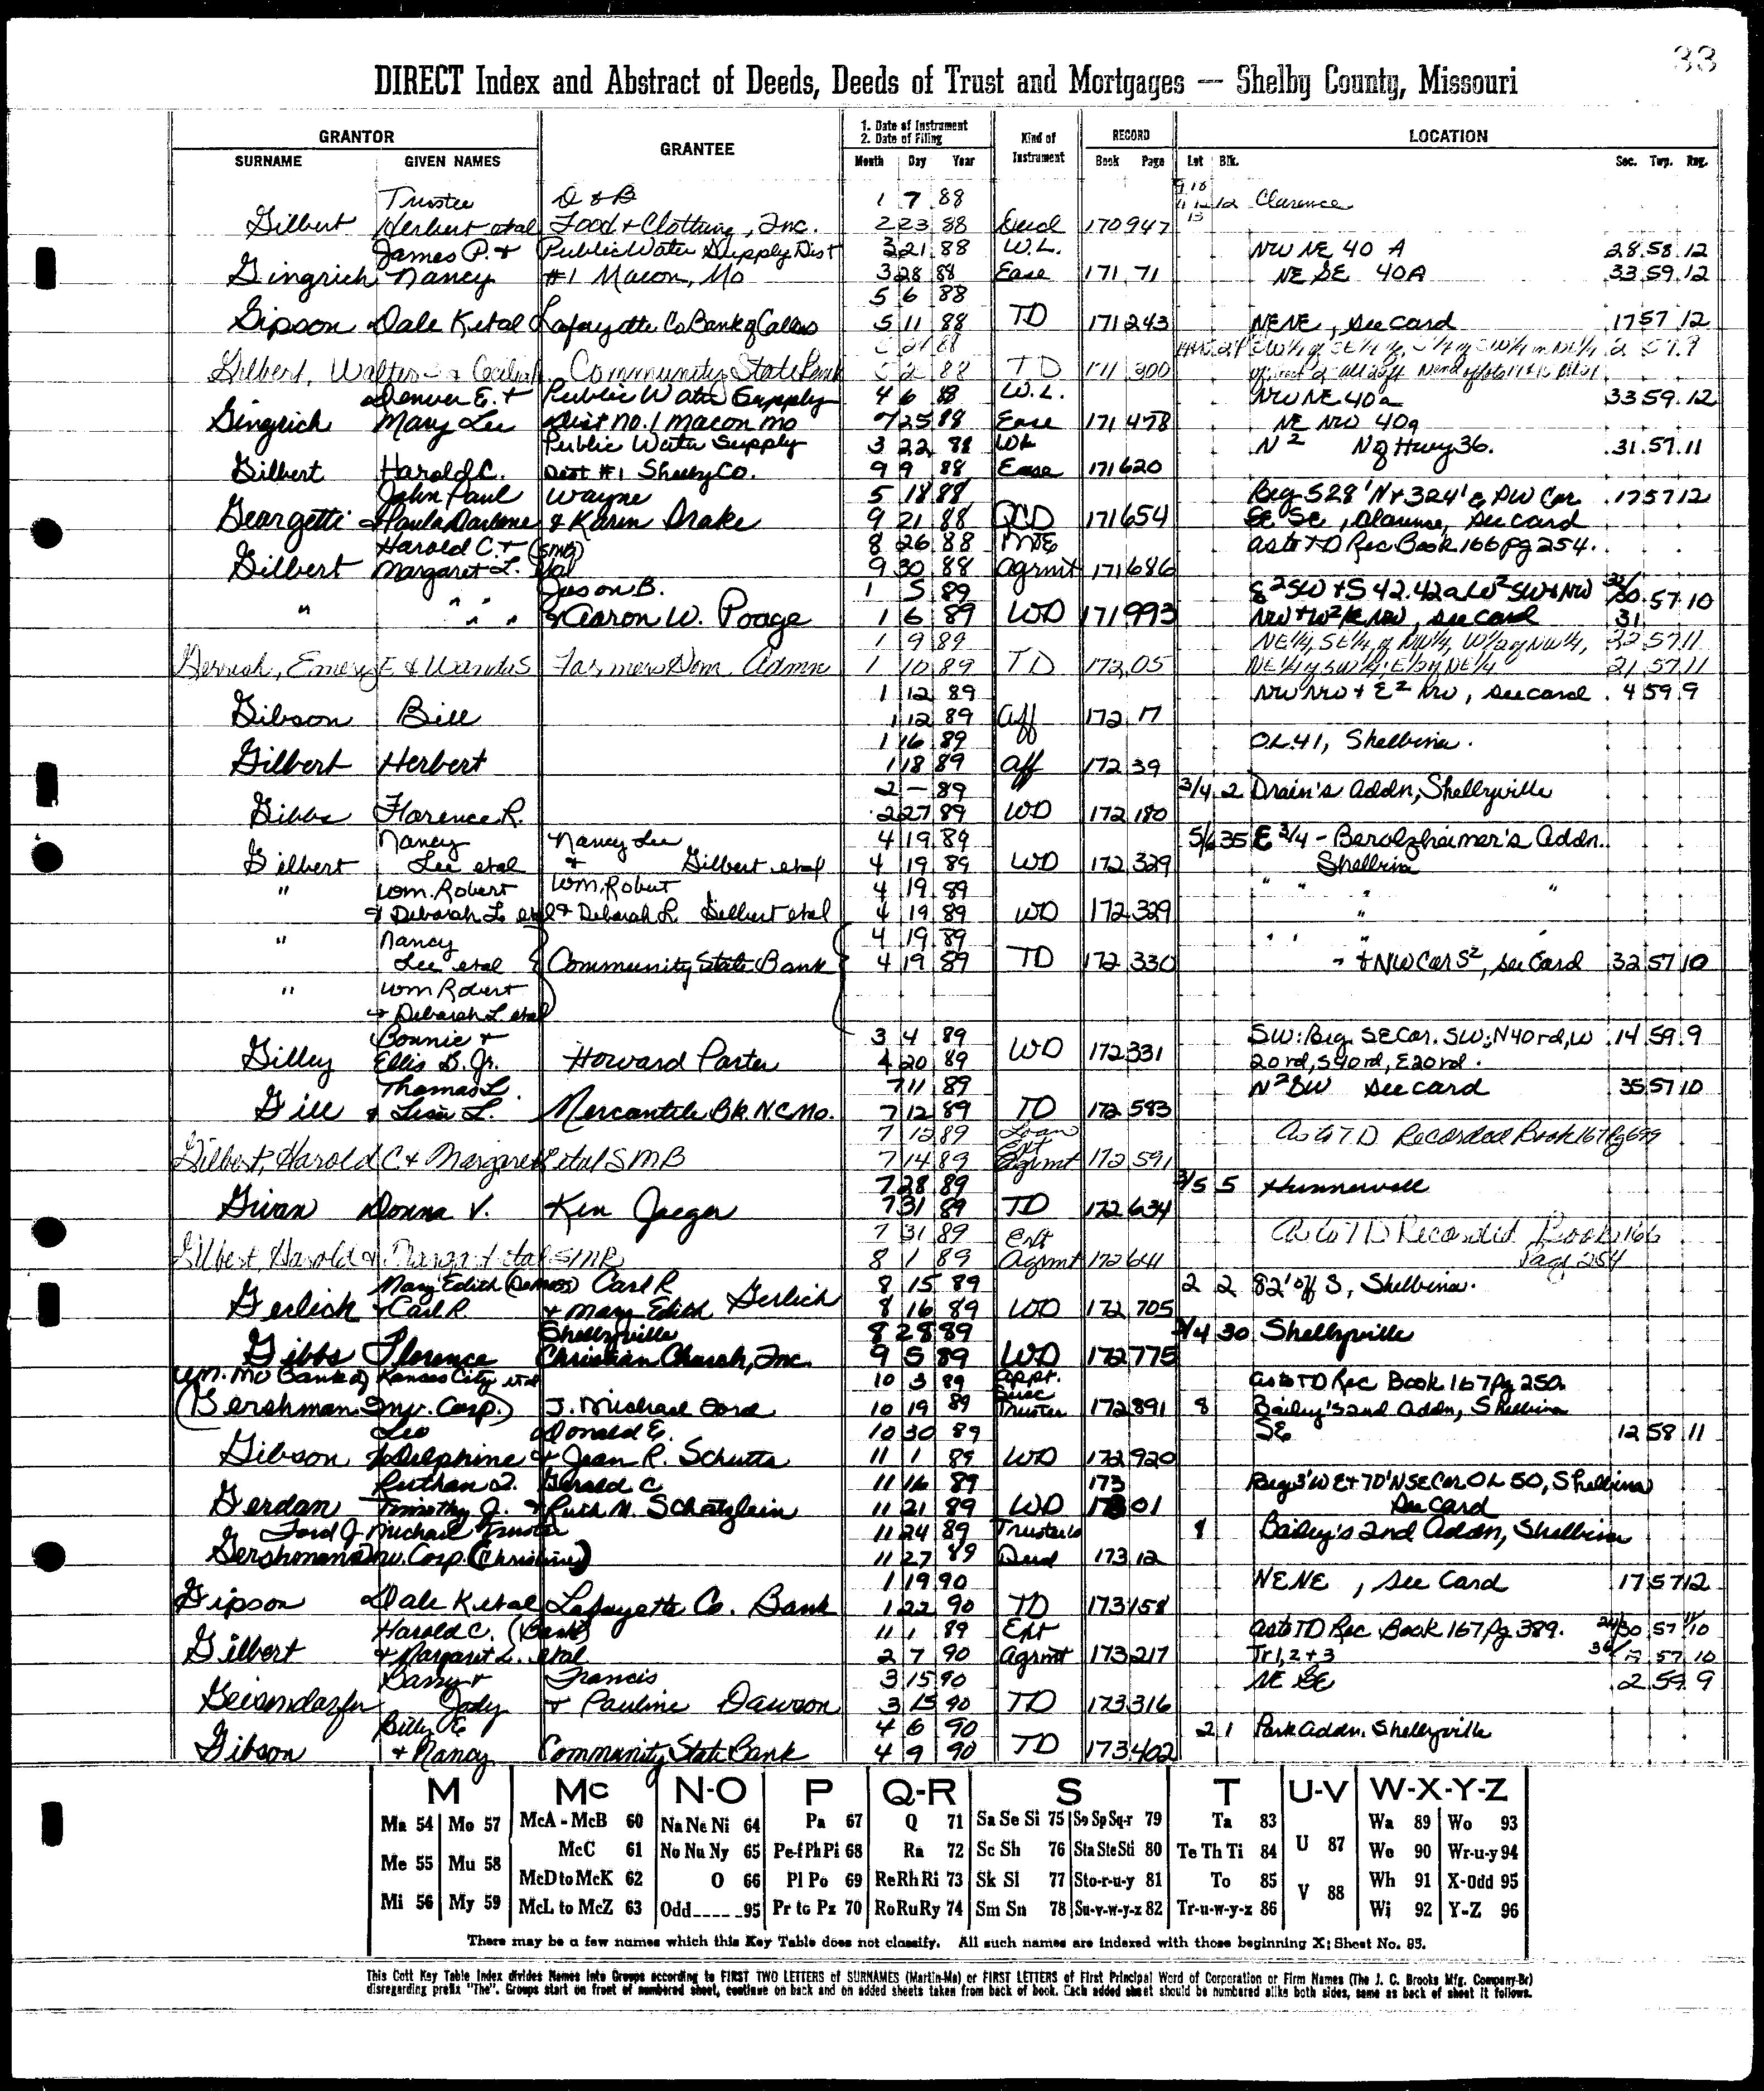 33
DIRECT Index and Abstract of Deeds, Deeds of Trust and Mortgages — Shelby County, Missouri
GRANTOR GRANTEE 1. Date of Instrument 2. Date of Filing Kind of Instrument RECORD LOCATION
SURNAME GIVEN NAMES Month Day Year Book Page Lot Blk. Sec. Twp. Rng.
Trustee D & B 1 7 88 12 Clarence
Gilbert Herbert etal Food & Clothing, Inc. 2 23 88 Deed 170 947
James P. & Public Water Supply Dist 3 21 88 W.L. NW NE 40 A 28 58 12
Gingrich Nancy #1 Macon, Mo 3 28 88 Ease 171 71 NE SE 40A 33 59 12
5 6 88
Gipson Dale K etal Lafayette Co Bank of Callao 5 11 88 TD 171 243 NENE, see card 17 57 12
Gilbert, Walter Community State Bank 88 TD 171 300
Denver E. & Public Water Supply 4 6 88 W.L. NW NE 40a 33 59 12
Gingrich Mary Lee Dist no. 1 Macon mo 7 25 88 Ease 171 478 NE NW 40a
Public Water Supply 3 22 88 WL N 2 N of Hwy 36. 31 57 11
Gilbert Harold C. Dist #1 Shelby Co. 9 9 88 Ease 171 620
John Paul Wayne 5 18 88 Beg 528' N & 324' E SW Cor 17 57 12
Georgetti & Paula Darlene & Karen Drake 9 21 88 QCD 171 654 SE SE, Clarence, See card
Harold C. & (SMB) 8 26 88 as to TD Rec Book 166 pg 254.
Gilbert Margaret L. etal 9 30 88 agrmt 171 686
Jason B. 1 5 89 57 10
" " " & Aaron W. Poage 1 6 89 WD 171 993 see card 31
1 9 89 NE 1/4, SE 1/4 of NW 1/4, W 1/2 of NW 1/4, 22 57 11
Emery E & Wanda S Farmers Hom. Admn 1 10 89 TD 172 05 NE 1/4 of SW 1/4; E 1/2 of NE 1/4 21 57 11
1 12 89 NW NW & E 2 NW, see card 4 59 9
Gibson Bill 1 12 89 Aff 172 17
1 16 89 O.L. 41, Shelbina.
Gilbert Herbert 1 18 89 Aff 172 39
2 - 89 3/4 2 Drain's Addn, Shelbyville
Gibbs Florence R. 2 27 89 WD 172 180
Nancy Nancy Lee 4 19 89 5/6 35 E 3/4 - Berolzheimer's Addn.
Gilbert Lee etal & Gilbert etal 4 19 89 WD 172 329 Shelbina
" Wm. Robert Wm. Robert 4 19 89 " " " "
& Deborah L etal & Deborah L Gilbert etal 4 19 89 WD 172 329 "
" Nancy 4 19 89 " " " "
Lee etal & Community State Bank 4 19 89 TD 172 330 " & NW Cor S 2, see Card 32 57 10
" Wm Robert
& Deborah L etal
Bonnie & 3 4 89 SW: Beg SE Cor. SW; N 40 rd, W 14 59 9
Gilley Ellis D. Jr. Howard Porter 4 20 89 WD 172 331 20 rd, S 40 rd, E 20 rd.
Thomas L. 7 11 89 N 2 SW See card 35 57 10
Gill & Lisa L. Mercantile Bk. NC Mo. 7 12 89 TD 172 583
7 12 89 Loan As to TD Recorded Book 167 Pg 699
Gilbert, Harold C & Margaret L etal SMB 7 14 89 Ext Agrmt 172 591
7 28 89 5 Hunnewell
Givan Donna V. Ken Jaeger 7 31 89 TD 172 634
7 31 89 Ext As to TD Recorded Book 166
Gilbert, Harold & Margaret etal SMB 8 1 89 Agrmt 172 641 Page 254
Mary Edith (DeMoss) Carl R 8 15 89 2 2 82' off S, Shelbina.
Gerlich & Carl R. & Mary Edith Gerlich 8 16 89 WD 172 705
Shelbyville 8 28 89 30 Shelbyville
Gibbs Florence Christian Church, Inc. 9 5 89 WD 172 775
Kansas City etal 10 3 89 Appt. as to TD Rec Book 167 Pg 250.
(Gershman Inv. Corp.) J. Michael Ford 10 19 89 Succ Trustee 172 891 8 Bailey's 2nd Addn, Shelbina
Leo Donald E. 10 30 89 SE 12 58 11
Gibson & Delphine & Jean R. Schutte 11 1 89 WD 172 920
Ruthan D. Gerald C 11 16 89 173 Beg 3' W E & 70' N SE Cor OL 50, Shelbina
Gerdan Timothy J. & Ruth M. Schatzlein 11 21 89 WD 01 See Card
Ford J. Michael Trustee 11 24 89 Trustee's 8 Bailey's 2nd Addn, Shelbina
Gershman Inv. Corp. (Christine) 11 27 89 Deed 173 12
1 19 90 NE NE, see Card 17 57 12
Gipson Dale K etal Lafayette Co. Bank 1 22 90 TD 173 158
Harold C. (Bank) 11 1 89 Ext as to TD Rec Book 167 Pg 389. 57
Gilbert & Margaret L. etal 2 7 90 Agrmt 173 217 Tr 1, 2 & 3 57 10
Barry & Francis 3 15 90 NE SE 2 59 9
Geisendorfer Jody & Pauline Dawson 3 15 90 TD 173 316
Billy E 4 6 90 2 1 Park addn. Shelbyville
Gibson & Nancy Community State Bank 4 9 90 TD 173 402
M Mc N-O P Q-R S T U-V W-X-Y-Z
Ma 54 Mo 57 McA - McB 60 Na Ne Ni 64 Pa 67 Q 71 Sa Se Si 75 So Sp Sq-r 79 Ta 83 U 87 Wa 89 Wo 93
Me 55 Mu 58 McC 61 No Nu Ny 65 Pe-f Ph Pi 68 Ra 72 Sc Sh 76 Sta Ste Sti 80 Te Th Ti 84 V 88 We 90 Wr-u-y 94
McD to McK 62 O 66 Pl Po 69 Re Rh Ri 73 Sk Sl 77 Sto-r-u-y 81 To 85 Wh 91 X-Odd 95
Mi 56 My 59 McL to McZ 63 Odd_____95 Pr to Pz 70 Ro Ru Ry 74 Sm Sn 78 Su-v-w-y-z 82 Tr-u-w-y-z 86 Wi 92 Y-Z 96
There may be a few names which this Key Table does not classify. All such names are indexed with those beginning X; Sheet No. 95.
This Cott Key Table Index divides Names into Groups according to FIRST TWO LETTERS of SURNAMES (Martin-Ma) or FIRST LETTERS of First Principal Word of Corporation or Firm Names (The J. C. Brooks Mfg. Company-Br)
disregarding prefix "The". Groups start on front of numbered sheet, continue on back and on added sheets taken from back of book. Each added sheet should be numbered alike both sides, same as back of sheet it follows.